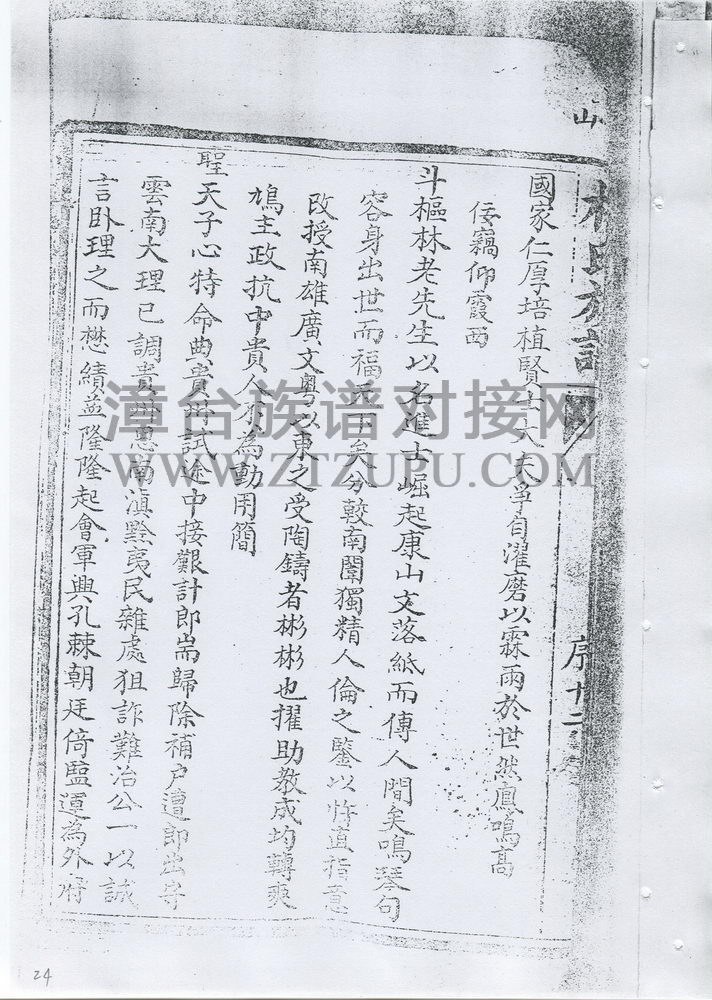 山
林氏族譜
序十二
國家仁厚培植賢士大夫爭自濯磨以霖雨於世然鳳鳴高
仰霞西
斗樞林老先生以名進士崛起康山文落紙而傳人間矣鳴琴句
容身出世而福天下矣分較南闈獨精人倫之鑒以忤直指意
改授南雄廣文粵以東之受陶鑄者彬彬也擢助教成均轉爽
鳩主政抗中貴人不為動用簡
聖天子心特命典貴州試途中接艱計即耑歸除補戶遭郎出守
雲南大理已調貴州思南滇黔夷民雜處狙詐難治公一以誠
言臥理之而懋績益隆隆起會軍興孔棘朝廷倚監運為外府
漳台族谱对接网
WWW.ZTZUPU.COM
24